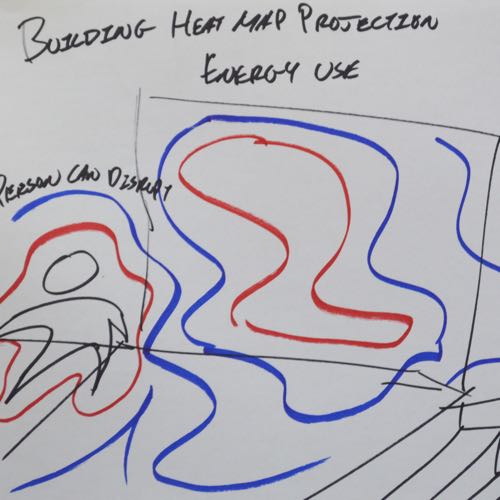 BUILDING HEAT MAP PROJECTION
ENERGY USE
PERSON CAN DISRUPT